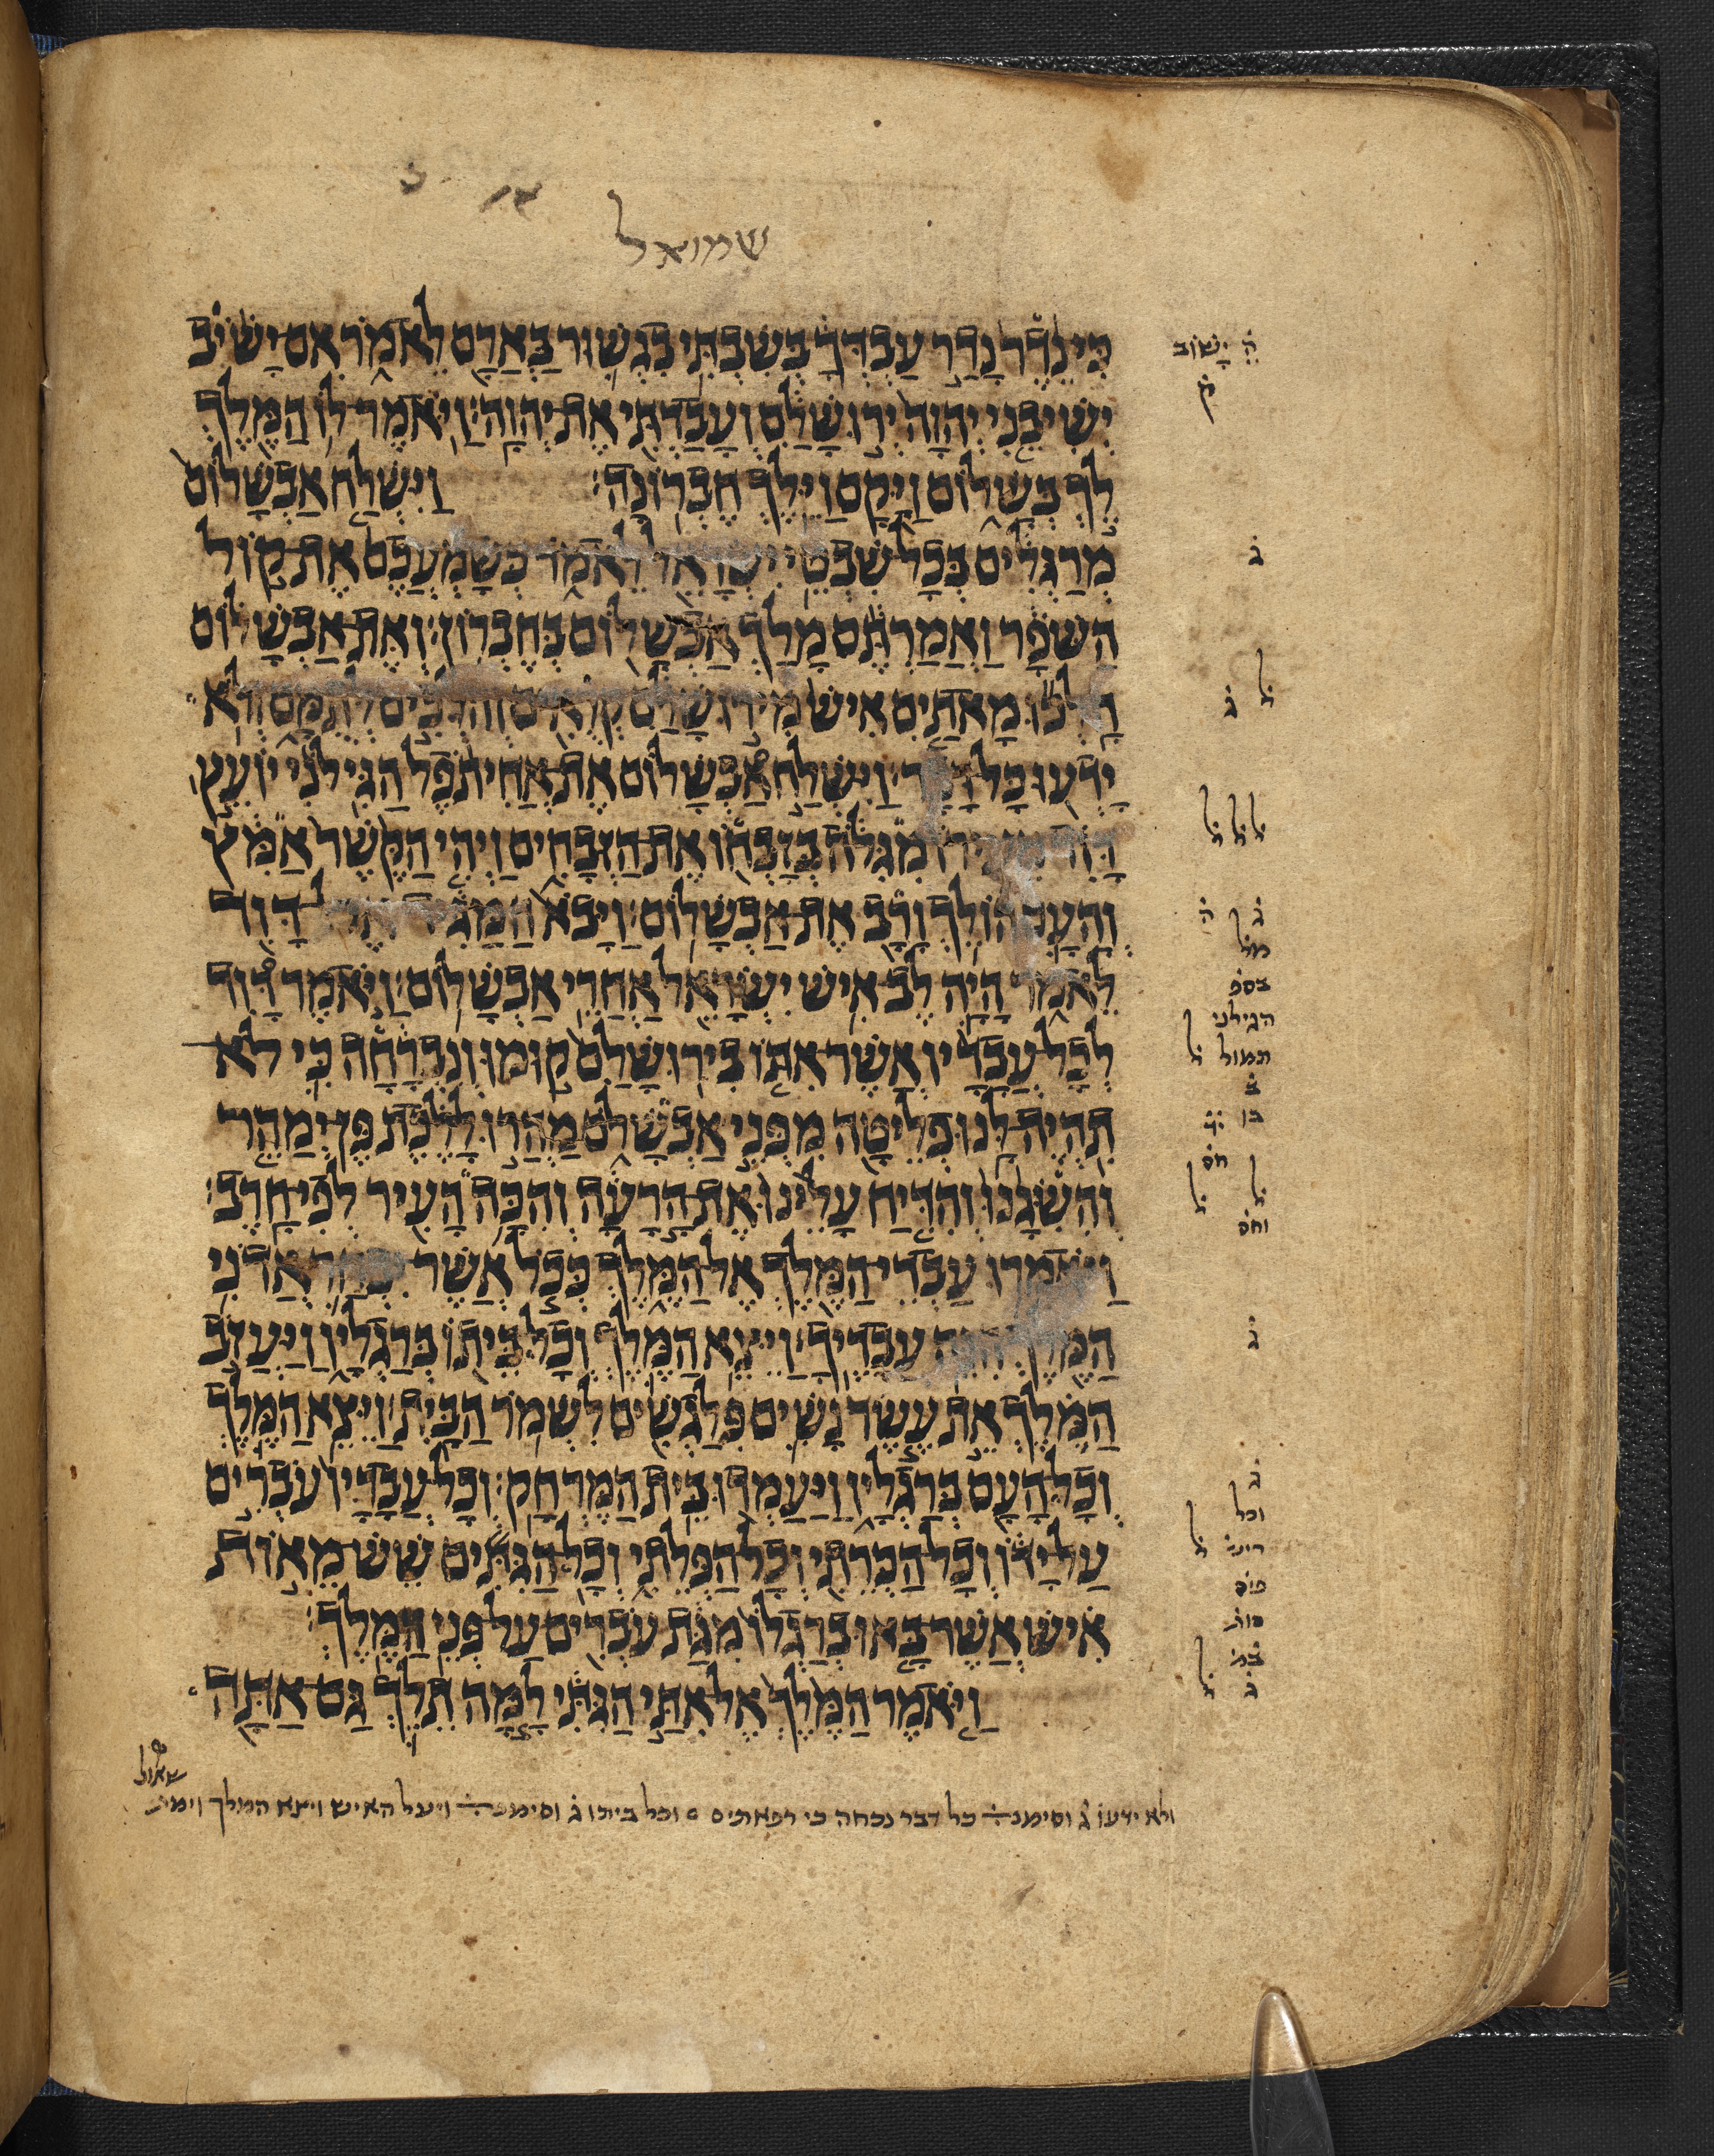 שמואל
כִּי נֵדֶר נָדַר עַבְדְּךָ בְּשִׁבְתִּי בִגְשׁוּר בַּאֲרָם לֵאמֹר אִם יָשִׁיב
יְשִׁיבֵנִי יְהוָה יְרוּשָׁלִַם וְעָבַדְתִּי אֶת יְהוָה׃ וַיֹּאמֶר לוֹ הַמֶּלֶךְ
לֵךְ בְּשָׁלוֹם וַיָּקָם וַיֵּלֶךְ חֶבְרוֹנָה׃ וַיִּשְׁלַח אַבְשָׁלוֹם
מְרַגְּלִים בְּכָל שִׁבְטֵי יִשְׂרָאֵל לֵאמֹר כְּשָׁמְעֲכֶם אֶת קוֹל
הַשֹּׁפָר וַאֲמַרְתֶּם מָלַךְ אַבְשָׁלוֹם בְּחֶבְרוֹן׃ וְאֶת אַבְשָׁלוֹם
הָלְכוּ מָאתַיִם אִישׁ מִירוּשָׁלִַם קְרֻאִים וְהֹלְכִים לְתֻמָּם וְלֹא
יָדְעוּ כָּל דָּבָר׃ וַיִּשְׁלַח אַבְשָׁלוֹם אֶת אֲחִיתֹפֶל הַגִּילֹנִי יוֹעֵץ
דָּוִד מִגִּלֹה בְּזָבְחוֹ אֶת הַזְּבָחִים וַיְהִי הַקֶּשֶׁר אַמִּץ
וְהָעָם הוֹלֵךְ וָרָב אֶת אַבְשָׁלוֹם׃ וַיָּבֹא הַמַּגִּיד אֶל דָּוִד
לֵאמֹר הָיָה לֶב אִישׁ יִשְׂרָאֵל אַחֲרֵי אַבְשָׁלוֹם׃ וַיֹּאמֶר דָּוִד
לְכָל עֲבָדָיו אֲשֶׁר אִתּוֹ בִירוּשָׁלִַם קוּמוּ וְנִבְרָחָה כִּי לֹא
תִהְיֶה לָּנוּ פְלֵיטָה מִפְּנֵי אַבְשָׁלֹם מַהֲרוּ לָלֶכֶת פֶּן יְמַהֵר
וְהִשִּׂגָנוּ וְהִדִּיחַ עָלֵינוּ אֶת הָרָעָה וְהִכָּה הָעִיר לְפִי חָרֶב׃
וַיֹּאמְרוּ עַבְדֵי הַמֶּלֶךְ אֶל הַמֶּלֶךְ כְּכֹל אֲשֶׁר יִבְחַר אֲדֹנִי
הַמֶּלֶךְ הִנֵּה עֲבָדֶיךָ׃ וַיֵּצֵא הַמֶּלֶךְ וְכָל בֵּיתוֹ בְּרַגְלָיו וַיַּעֲזֹב
הַמֶּלֶךְ אֵת עֶשֶׂר נָשִׁים פִּלַגְשִׁים לִשְׁמֹר הַבָּיִת׃ וַיֵּצֵא הַמֶּלֶךְ
וְכָל הָעָם בְּרַגְלָיו וַיַּעַמְדוּ בֵּית הַמֶּרְחָק׃ וְכָל עֲבָדָיו עֹבְרִים
עַל יָדוֹ וְכָל הַכְּרֵתִי וְכָל הַפְּלֵתִי וְכָל הַגִּתִּים שֵׁשׁ מֵאוֹת
אִישׁ אֲשֶׁר בָּאוּ בְרַגְלוֹ מִגַּת עֹבְרִים עַל פְּנֵי הַמֶּלֶךְ׃
וַיֹּאמֶר הַמֶּלֶךְ אֶל אִתַּי הַגִּתִּי לָמָּה תֵלֵךְ גַּם אַתָּה
יָשׁוֹב
ק̇
ג̇
ל̇ ג̇
ל̇ ל̇ ל̇
בספ̇
הגילני
תמול ל̇
ב̇
חס̇
ל̇ ל̇
וחס̇
ג̇
ג̇
וכל
ולא ידעו ג̇ וסימנ כל דבר נכחה כי רפאתים ס וכל ביתו ג̇ וסימנ ויעל האיש ויצא המלך וימת
שאול